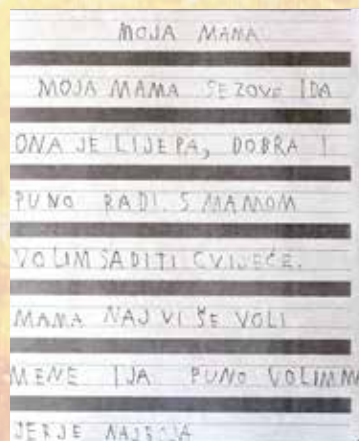 MOJA MAMA
MOJA MAMA SE ZOVE IDA
ONA JE LIJEPA, DOBRA I
PUNO RADI. S MAMOM
VOLIM SADITI CVIJEĆE.
MAMA NAJ VIŠE VOLI
MENE I JA PUNO VOLIM
JER JE